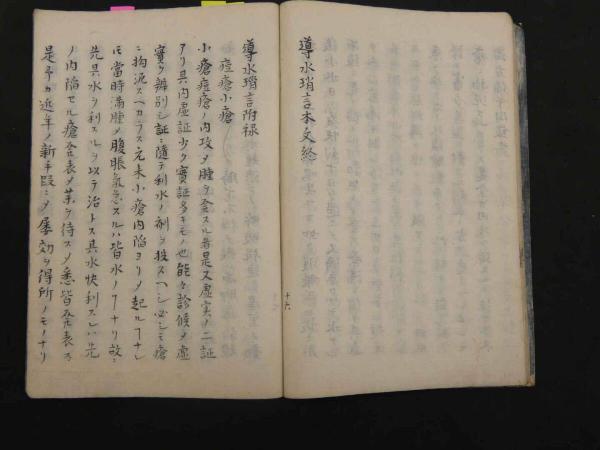 導水瑣言本文終
十六
導水瑣言附禄
痘瘡小瘡
小瘡痘瘡ノ内攻〆腫ヲ発スル者是又虚実ノ二証
アリ其内虚証少ク實証多キモノ也能々診候〆虚
實ヲ辨別シ証ニ隨テ利水ノ剤ヲ投スヘシ必シモ瘡
ニ拘泥スヘカラス元来小瘡内陥ヨリ〆起ルヿナレ
𪜈當時満腫〆腹脹氣急スルハ皆水ノヿナリ故ニ
先其水ヲ利スルヲ以テ治トス其水快利スレハ先
ノ内陥セル瘡発表ノ薬ヲ待ス〆悉皆発表ス
是予カ近年ノ新手段ニ〆屡効ヲ得所ノモノナリ